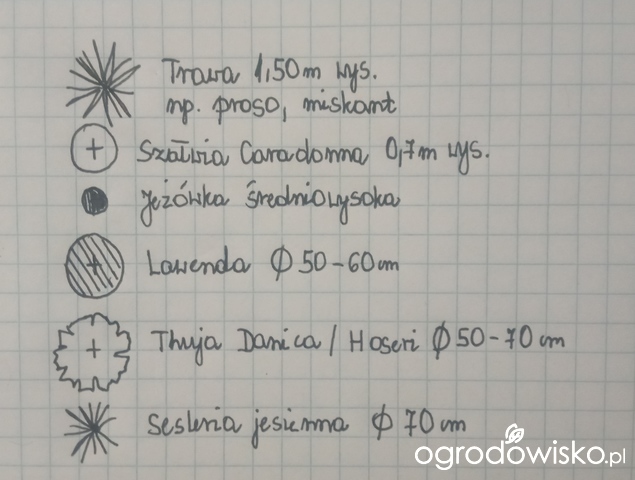 Trawa 1,50m wys.
np. proso, miskant
Szałwia Caradonna 0,7m wys.
Jeżówka średniowysoka
Lawenda Ø 50-60cm
Thuja Danica / Hoseri Ø 50-70 cm
Sesleria jesienna Ø 70 cm
ogrodowisko.pl